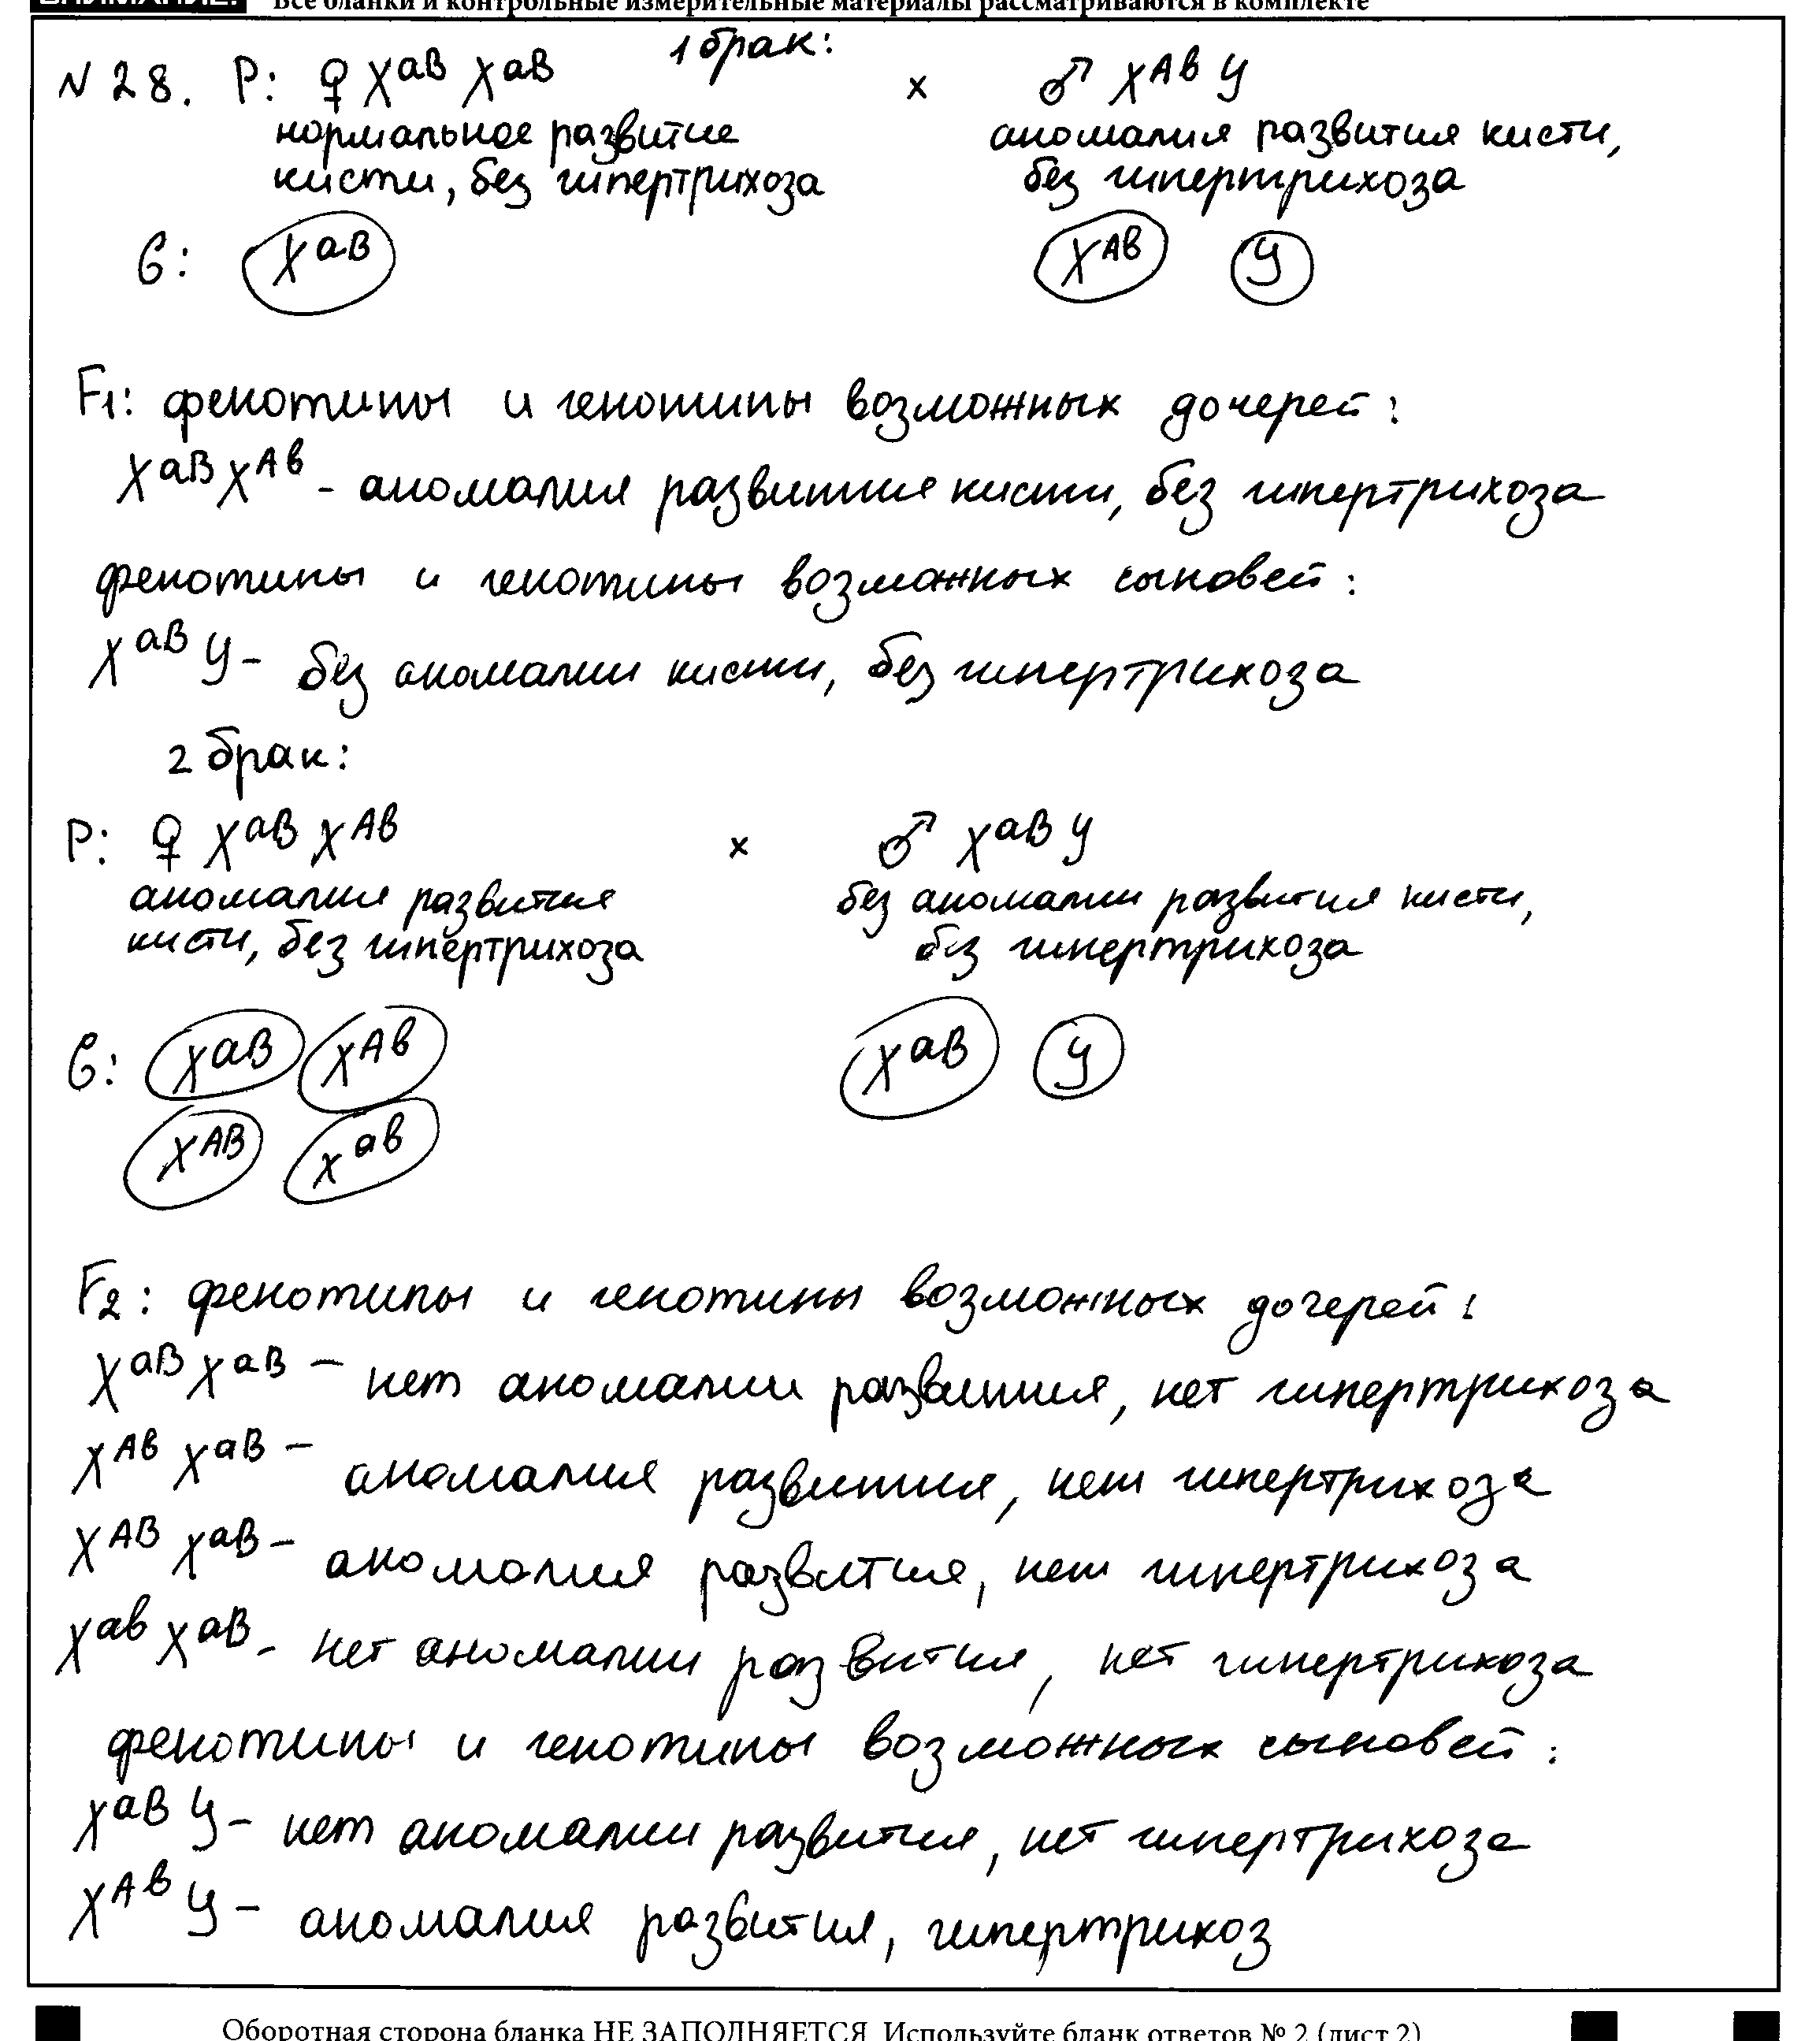 ВНИМАНИЕ! Все бланки и контрольные измерительные материалы рассматриваются в комплекте
1 брак:
N 28. P: ♀ X^aB X^aB × ♂ X^Aв У
нормальное развитие аномалия развития кисти,
кисти, без гипертрихоза без гипертрихоза
G: X^aB X^Aв У
F1: фенотипы и генотипы возможных дочерей:
X^aB X^Aв - аномалия развития кисти, без гипертрихоза
фенотипы и генотипы возможных сыновей:
X^aB У - без аномалии кисти, без гипертрихоза
2 брак:
P: ♀ X^aB X^Aв × ♂ X^aB У
аномалия развития без аномалии развития кисти,
кисти, без гипертрихоза без гипертрихоза
G: X^aB X^Aв X^aB У
X^AB X^aв
F2: фенотипы и генотипы возможных дочерей:
X^aB X^aB – нет аномалии развития, нет гипертрихоза
X^Aв X^aB – аномалия развития, нет гипертрихоза
X^AB X^aB – аномалия развития, нет гипертрихоза
X^aв X^aB - нет аномалии развития, нет гипертрихоза
фенотипы и генотипы возможных сыновей:
X^aB У – нет аномалии развития, нет гипертрихоза
X^Aв У – аномалия развития, гипертрихоз
Оборотная сторона бланка НЕ ЗАПОЛНЯЕТСЯ. Используйте бланк ответов № 2 (лист 2)